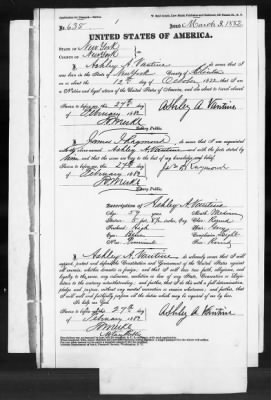 No. 635
Issued March 8, 1882
UNITED STATES OF AMERICA.
STATE OF New York
COUNTY OF New York
I, Ashley A. Vantine do swear that I
was born in the State of New York County of Clinton
on or about the 12th day of October 1822, that I am
a Native and loyal citizen of the United States of America, and am about to travel abroad.
Sworn to before me this 27th day
of February 1882
Ashley A. Vantine
Notary Public.
I, James I. Raymond do swear that I am
acquainted with the above named Ashley A. Vantine and with the facts stated by
him and that the same are true to the best of my knowledge and belief.
Sworn to before me this 27th day
of February 1882
Notary Public.
Description of Ashley A. Vantine
Age: 59 years
Mouth: Medium
Stature: 5 feet
Chin: Round
Forehead: High
Hair: Gray
Eyes:
Complexion: Light
Nose: Prominent
Face:
I, Ashley A. Vantine do solemnly swear that I will
support, protect and defend the Constitution and Government of the United States against
all enemies, whether domestic or foreign; and that I will bear true faith, allegiance, and
loyalty to the same, any ordinance, resolution or law of any State, Convention or Legislature
to the contrary notwithstanding; and further, that I do this with a full determination,
pledge and purpose, without any mental reservation or evasion whatsoever; and further, that
I will well and faithfully perform all the duties which may be required of me by law.
So help me God.
Sworn to before me this 27th day
of February 1882
Ashley A. Vantine